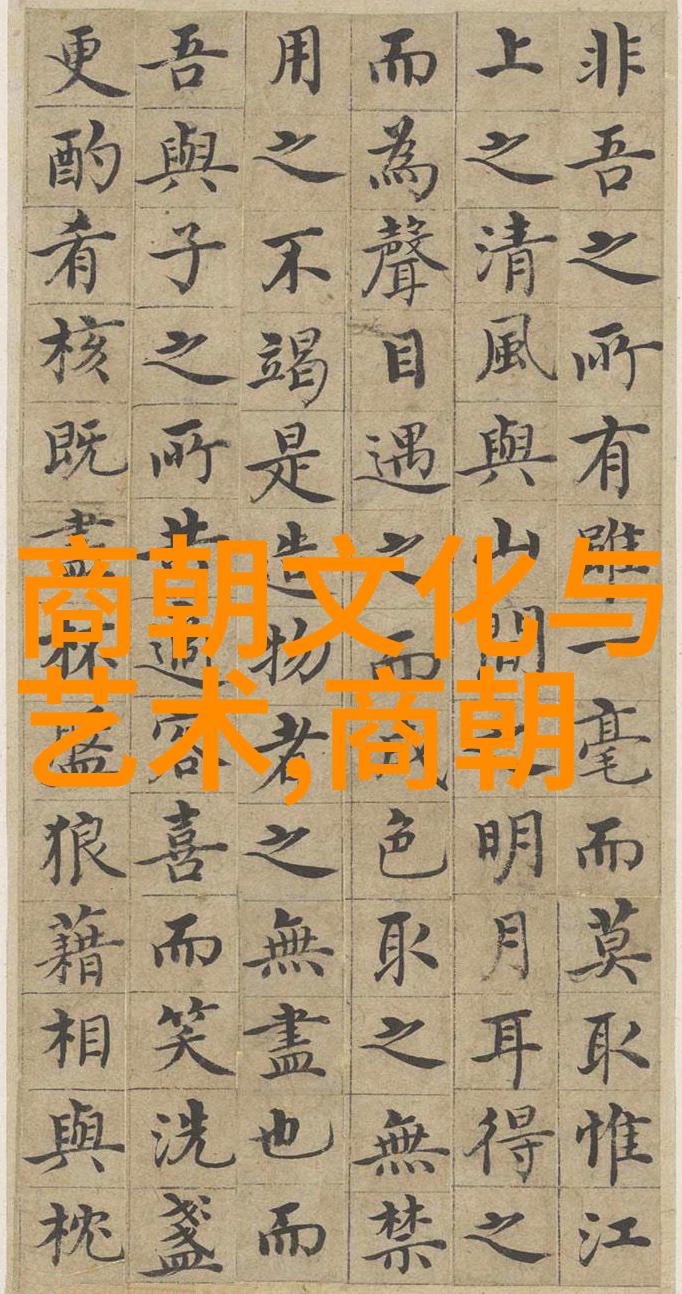 非吾之所有雖一毫而莫取惟江
上之清風與山間之明月耳得之
而為聲目遇之而成色取之無禁
用之不竭是造物者之無盡也而
吾與子之所共適客喜而笑洗盞
更酌肴核既盡杯盤狼藉相與枕
商朝文化与
艺术,商朝